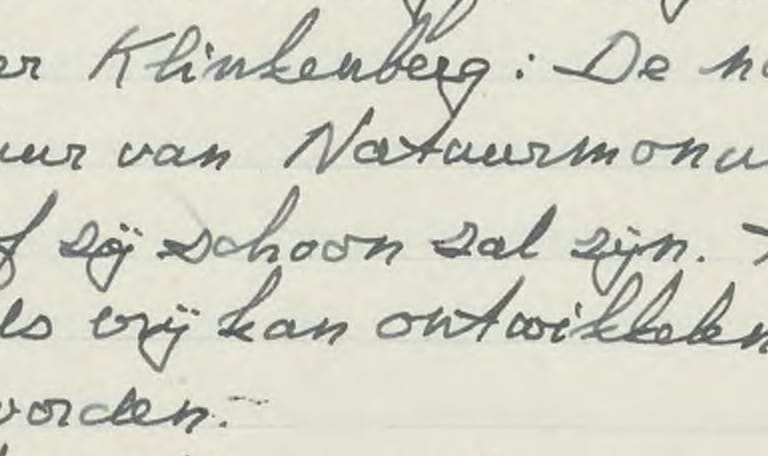 er Klinkenberg: De na
uur van Natuurmonu
f zij schoon zal zijn.
els vrij kan ontwikkelen
worden.